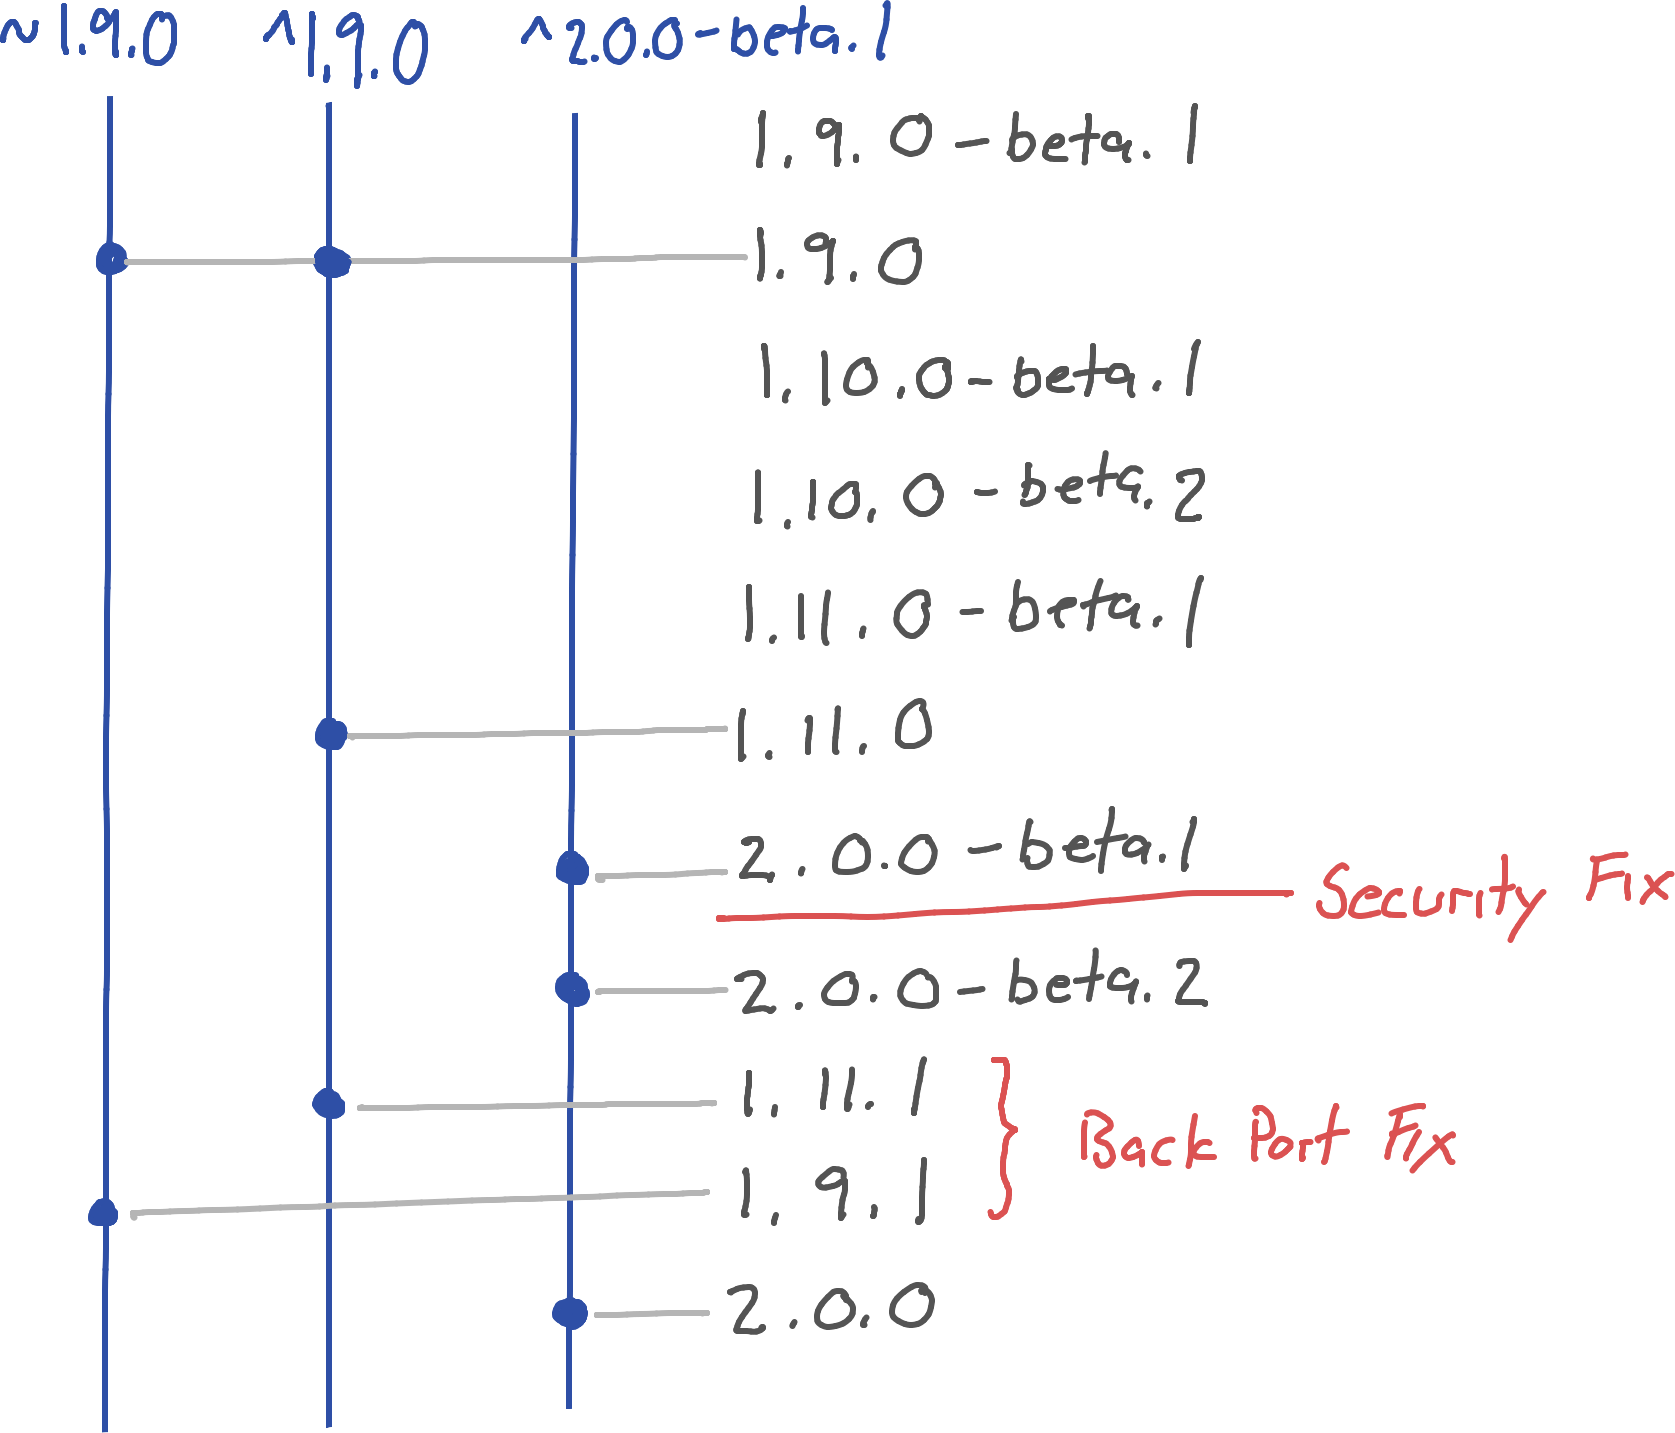 ~1.9.0 ^1.9.0 ^2.0.0-beta.1
1.9.0-beta.1
1.9.0
1.10.0-beta.1
1.10.0-beta.2
1.11.0-beta.1
1.11.0
2.0.0-beta.1
Security Fix
2.0.0-beta.2
1.11.1
Back Port Fix
1.9.1
2.0.0